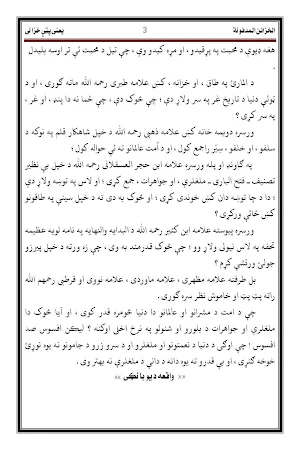 الخزائن المدفونة 3 یعنې پټې خزانې
هغه ډېوې د محبت په پړقېدو، او مړه کېدو وې، چې تېل د محبت ئې تر اوسه بلېدل
.
د المارۍ په طاق، او خزانه، کښ علامه طبری رحمه الله ماته ګوری، او د
ټولې دنیا د تاریخ غر په سر ولاړ دې؛ چې څوک دې، چې ځما نه دا پنډ، او غر،
په سر کړی؟
ورسره دویمه خانه کښ علامه ذهبی رحمه الله د خپل شاهکار قلم په نوکه د
سلفو، او خلفو، سِیَر راجمع کول، او د أمت عالمانو ته ئې حواله کول؛
په ګاونډ او پله ورسره علامه ابن حجر العسقلانی رحمه الله د خپل بې نظیر
تصنیف ـ فتح الباری ـ ملغلرې، او جواهرات، جمع کړی؛ او لاس په توښه ولاړ دې
؛ دا د چا توښه دان کښ خوندی کړی؛ او څوک به دی ته د خپل سینې په طاقونو
کښ ځائې ورکړی؟
ورسره پیوسته علامه ابن کثیر رحمه الله د البدایه والنهایه په نامه لویه عظیمه
تحفه په لاس نیولی ولاړ وو؛ چې څوک قدرمند به وی، چې زه ورته د خپل پېرزو
جولۍ ورڅنډې کړم؟
بل طرفته علامه مظهری، علامه ماوردی، علامه نووی او قرطبی رحمهم الله
راته پټ پټ او خاموش نظر سره ګوری.
چې د امت د مشرانو او عالمانو دا دنیا څومره قدر کوی، او آیا څوک دا
ملغلرې او جواهرات د بلورو او شنولو په نرخ اخلی اوکنه؟ لېکن افسوس صد
افسوس؛ چې اوګی د دنیا د نعمتونو او ملغلرو او د سرو زرو د جامونو نه یوه نوړۍ
خوځه ګڼی، او بې قدرو ته یوه دانه د دانې د ملغلرې نه بهتر وی.
«« واقعه دیو بانګی »»